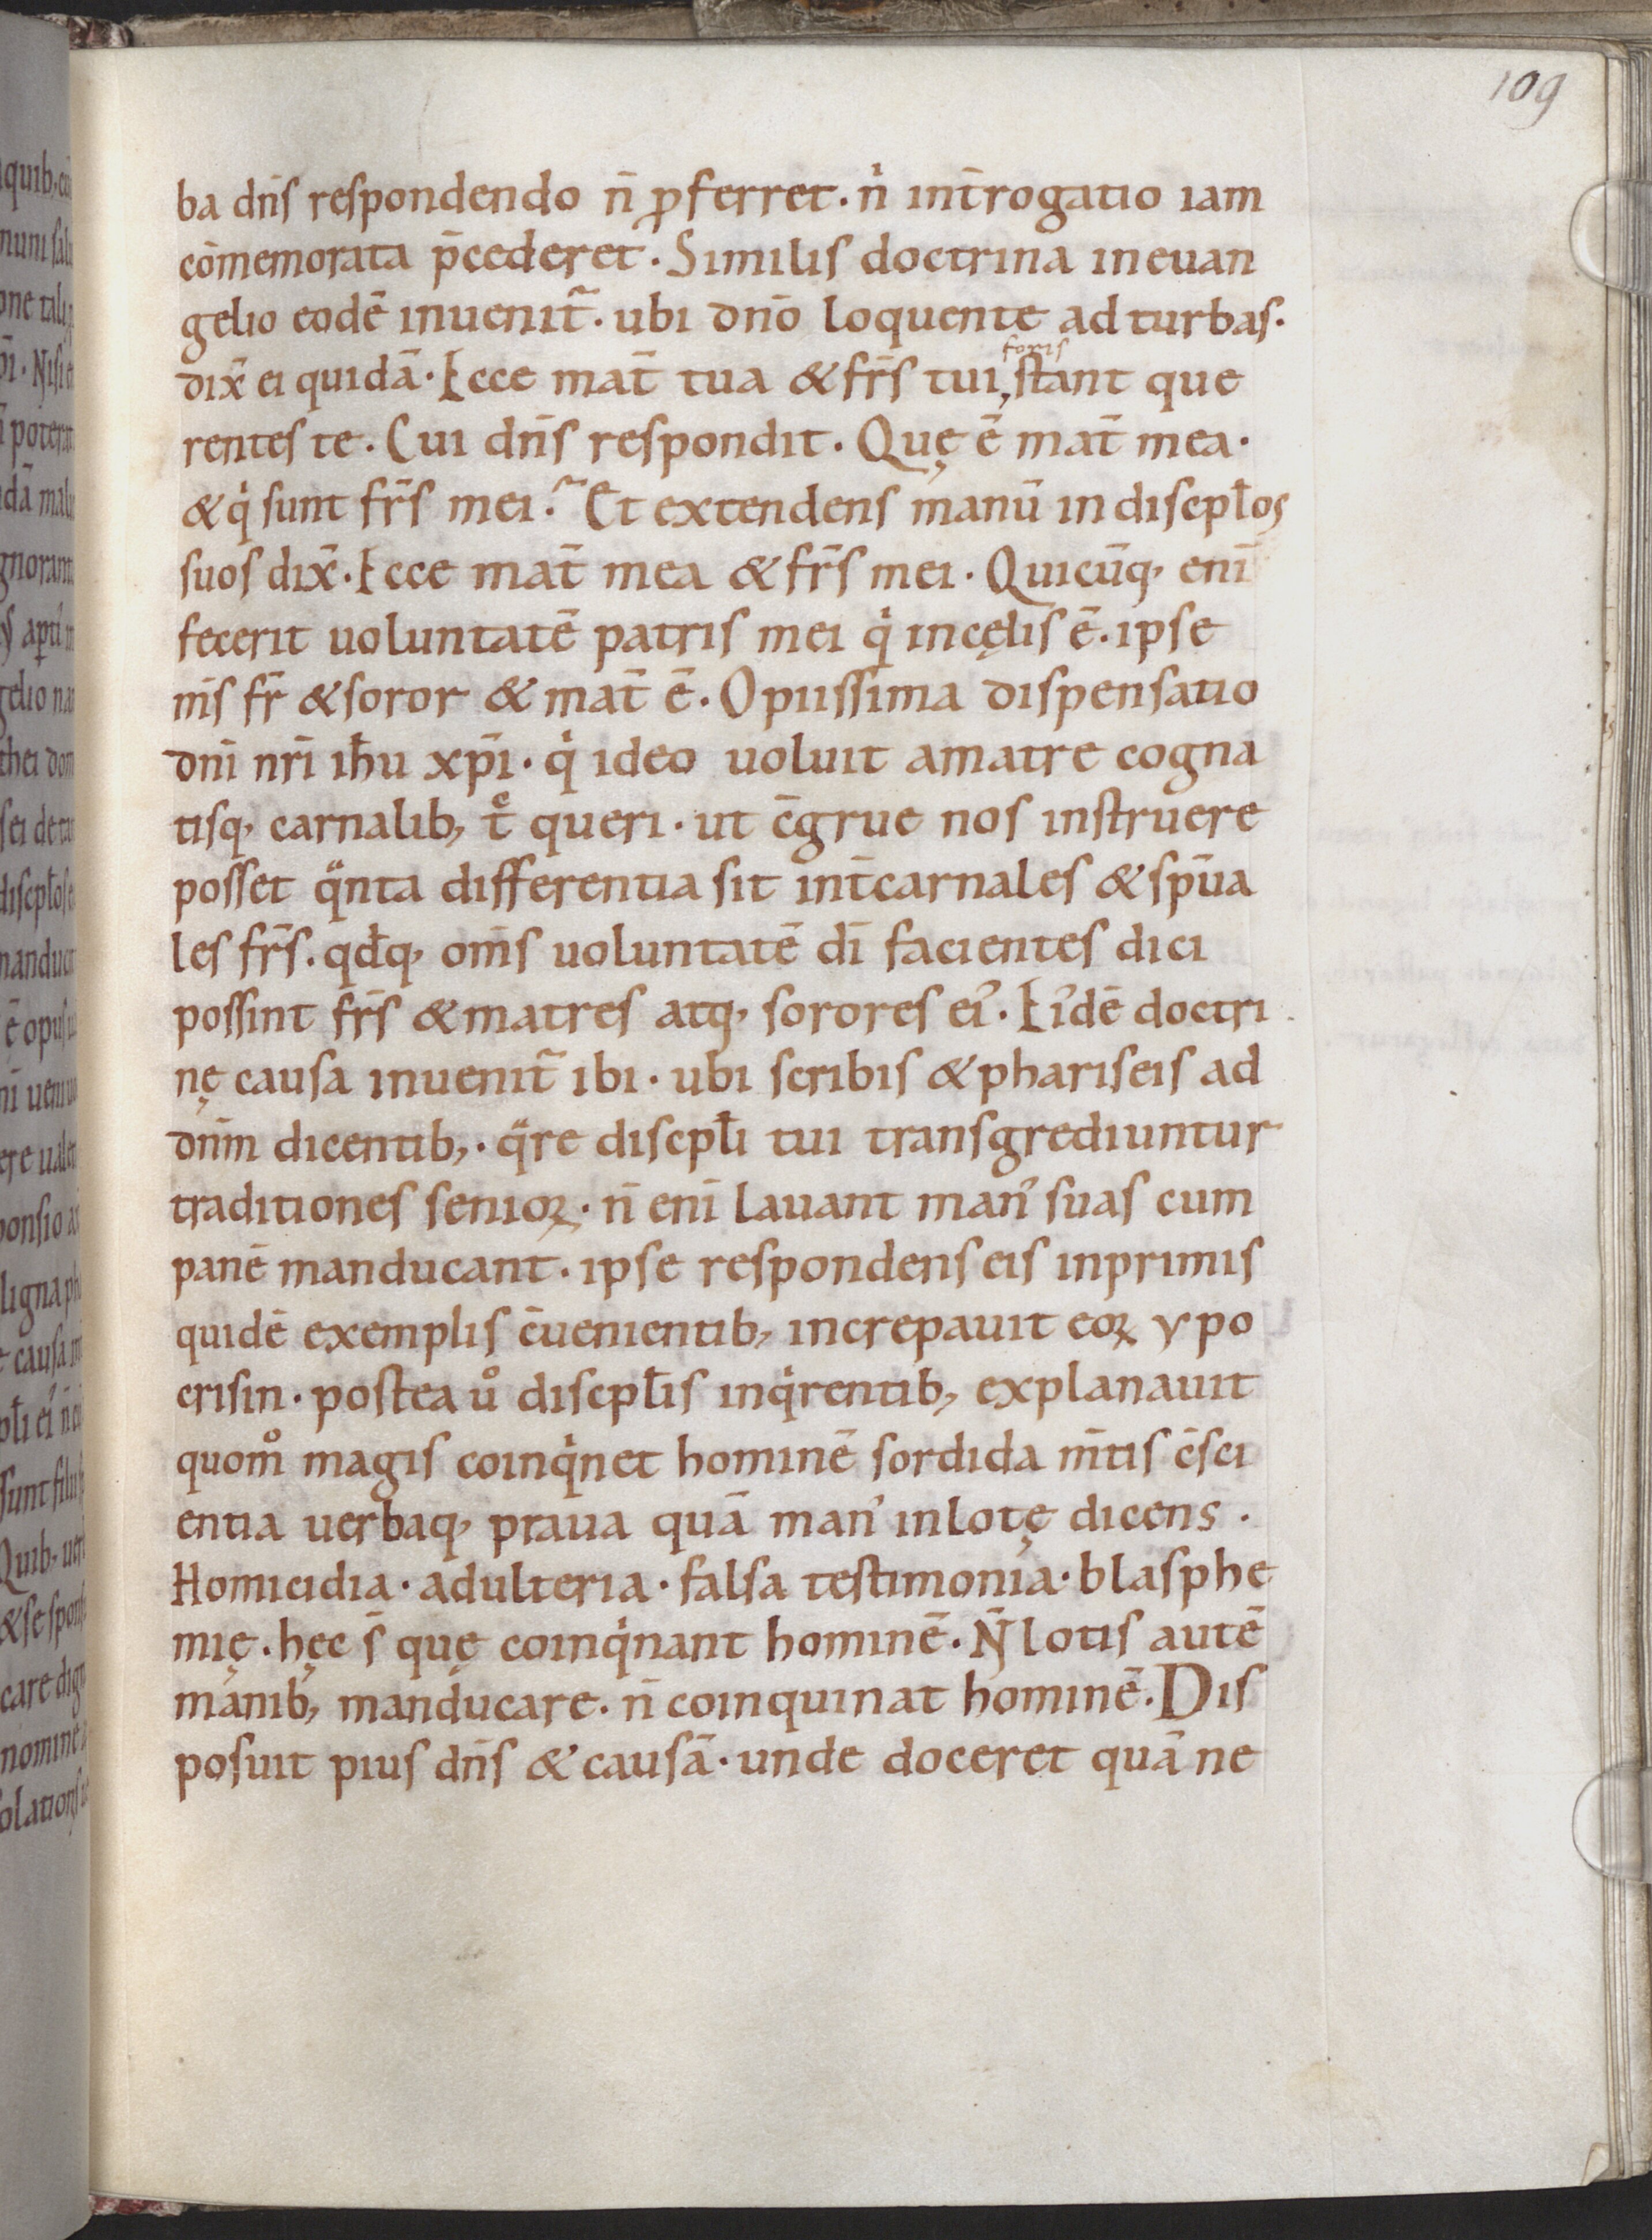 109
ba dn̄s respondendo n̄ ꝓferret. nͥ int̄rogatio iam
cōmemorata p̄cederet. Similis doctrina ineuan
gelio eodē inuenit᷑. ubi dn̄o loquente ad turbas.
dix̄ ei quidā. Ecce mat̄ tua & fr̄s tui, foris stant que
rentes te. Cui dn̄s respondit. Quę ē mat̄ mea.
& qͥ sunt fr̄s mei? Et extendens manū in discipl̄os
suos dix̄. Ecce mat̄ mea & fr̄s mei. Quicūq; enī
fecerit uoluntatē patris mei qͥ incęlis ē. ipse
m̄s fr̄ & soror & mat̄ ē. Opiissima dispensatio
dn̄i nr̄i ih̄u xp̄i. qͥ ideo uoluit amatre cogna
tisq; carnalib; t̄ͨ queri. ut c̄grue nos instruere
posset qͣnta differentia sit int̄carnales & sp̄ua
les fr̄s. qđq; om̄s uoluntatē dī facientes dici
possint fr̄s & matres atq; sorores ei᾽. Ei᾽dē doctri
nę causa inuenit᷑ ibi. ubi scribis & phariseis ad
dn̄m dicentib;. qͣre discipl̄i tui transgrediuntur
traditiones senioꝝ. n̄ enī lauant man᾽ suas cum
panē manducant. ipse respondens eis inprimis
quidē exemplis c̄uenientib; increpauit eoꝝ ypo
crisin. postea uͦ discipl̄is inqͥrentib; explanauit
quomͦ magis coinqͥnet hominē sordida m̄tis c̄sci
entia uerbaq; praua quā man᾽ inlotę dicens.
Homicidia. adulteria. falsa testimonia. blasphe
mię. hęc s̄ quę coinqͥnant hominē. N̄ lotis autē
manib; manducare. n̄ coinquinat hominē. Dis
posuit pius dn̄s & causā. unde doceret quā ne